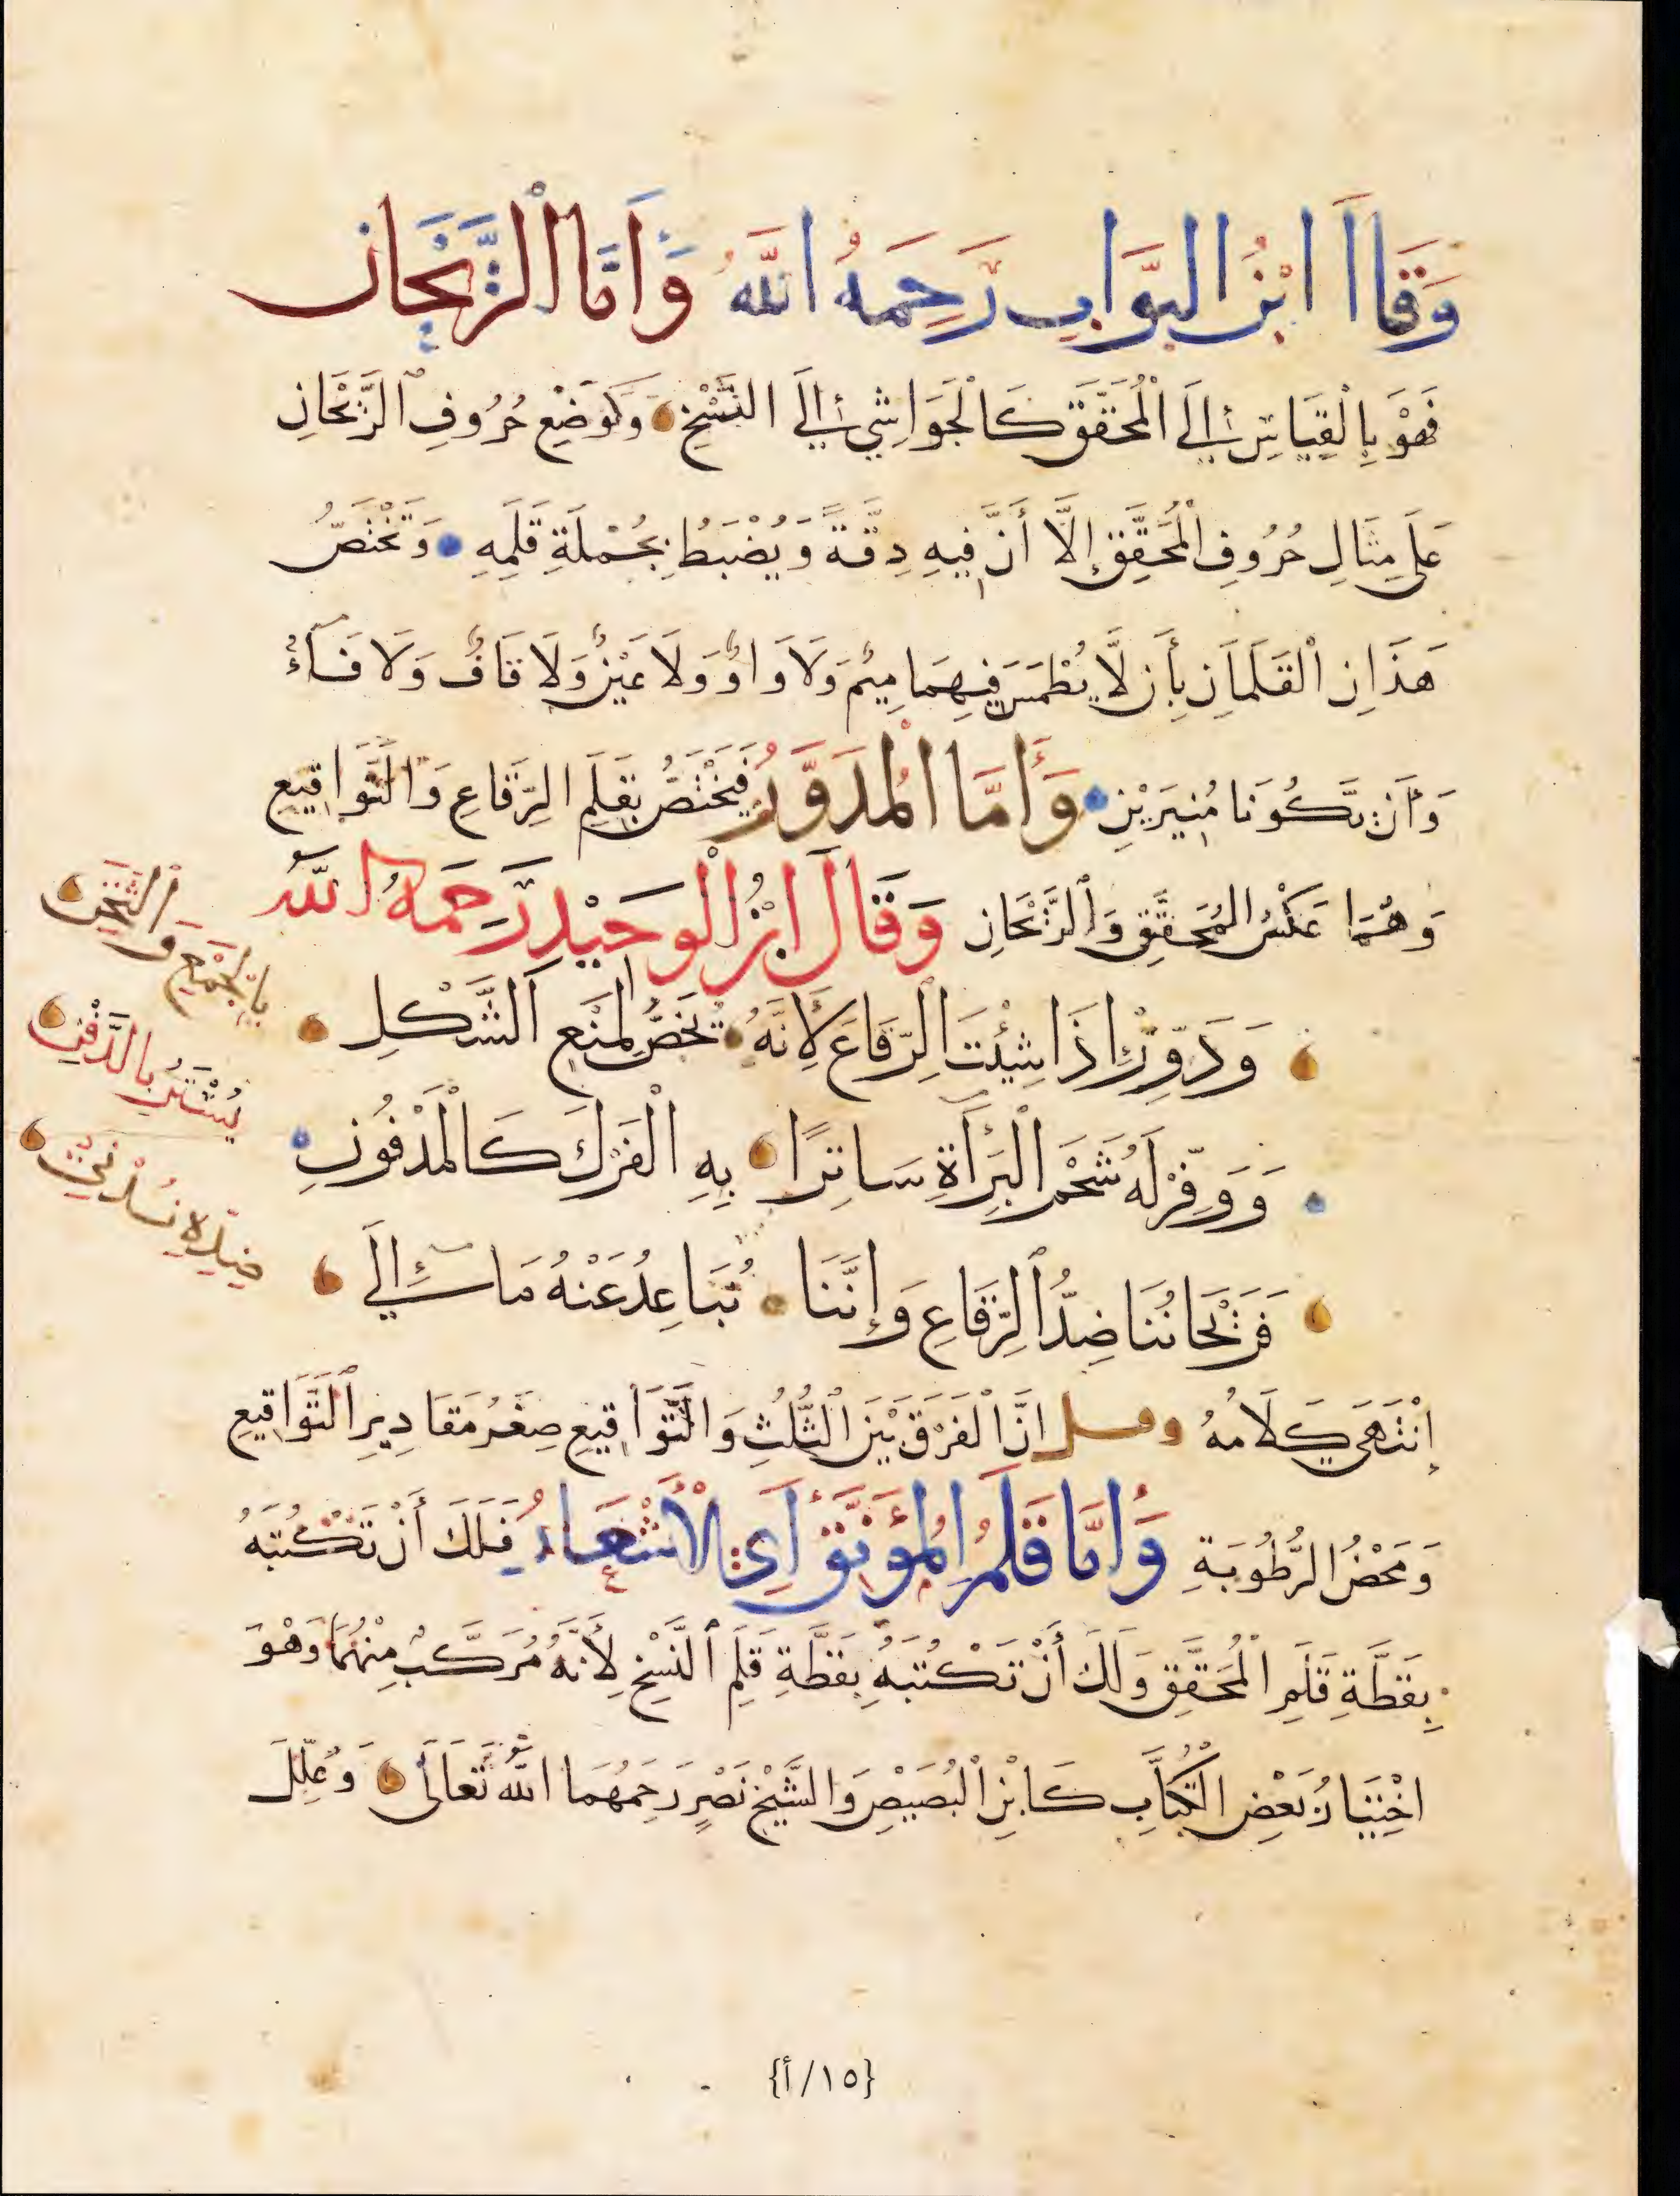 وَقَالَ ابْنُ البَوَّابِ رَحِمَهُ اللَّهُ وَأَمَّا الرَّيْحَان
فَهْوَ بِالْقِيَاسِ إِلَى الْمُحَقَّقِ كَالْحَوَاشِي إِلَى النَّسْخِ وَكَوَضْعِ حُرُوفِ الرَّيْحَانِ
عَلَى مِثَالِ حُرُوفِ الْمُحَقَّقِ إِلَّا أَنَّ فِيهِ دِقَّةً وَيُضْبَطُ بِجُمْلَةِ قَلَمِهِ وَتَخْتَصُّ
هَذَانِ الْقَلَمَانِ بِأَن لَّا يُطْمَسَ فِيهِمَا مِيْمٌ وَلَا وَاوٌ وَلَا عَيْنٌ وَلَا قَافٌ وَلَا فَآءٌ
وَأَنْ تَكُونَا مُنِيرَيْنِ وَأَمَّا الْمُدَوَّرُ فَيَخْتَصُّ بِقَلَمِ الرِّقَاعِ وَالتَّوَاقِيعِ
وَهُمَا عَكْسُ الْمُحَقَّقِ وَالرَّيْحَانِ وَقَالَ ابْنُ الْوَحِيْدِ رَحِمَهُ اللّٰهُ
وَدَوِّرْ إِذَا شِئْتَ الرِّقَاعَ لِأَنَّهُ يُخَصُّ لِمَنْعِ الشَّكْلِ بِالْجَمْعِ وَالثَّخِينِ
وَوَفِّرْ لَهُ شَحْمَ الْبَرَأَةِ سَاتِرًا بِهِ الْفَرْكَ كَالْمَدْفُونِ يُسْتَرُ بِالدَّفْنِ
فَرَيْحَانُنَا ضِدُّ الرِّقَاعِ وَإِنَّنَا نُبَاعِدُ عَنْهُ مَا
إِنْتَهَى كَلَامُهُ وقيل إِنَّ الْفَرْقَ بَيْنَ الثُّلُثِ وَالتَّوَاقِيعِ صِغَرُ مَقَادِيرِ التَّوَاقِيعِ
وَمَحْضُ الرُّطُوبَةِ وَأَمَّا قَلَمُ الْمُؤَنَّقِ أَيِ الْأَشْعَارِ فَلَكَ أَنْ تَكْتُبَهُ
بِقَطَّةِ قَلَمِ الْمُحَقَّقِ وَلَكَ أَنْ تَكْتُبَهُ بِقَطَّةِ قَلَمِ النَّسْخِ لِأَنَّهُ مُرَكَّبٌ مِنْهُمَا وَهْوَ
اخْتِيَارُ بَعْضِ الْكُتَّابِ كَابْنِ الْبُصَيْصِ وَالشَّيْخِ نَصْرٍ رَحِمَهُمَا اللّٰهُ تَعَالَى وَعُلِّلَ
{١٥/أ}